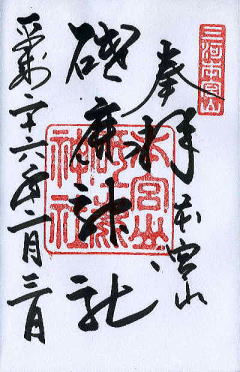 三河本宮山
奉拝 本宮山
砥鹿神社
平成二十六年一月三日
本宮山
砥鹿
神社